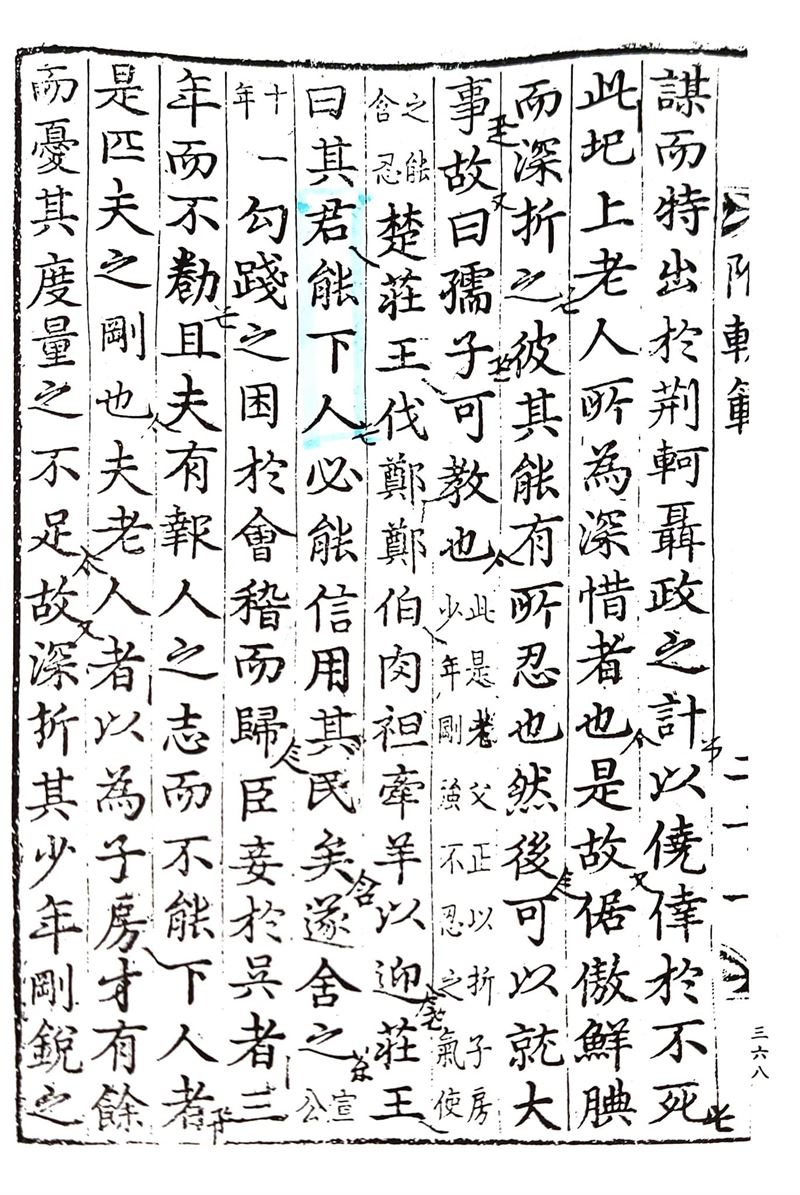 三六八
謀而特出於荆軻聶政之計以僥倖於不死
此圯上老人所為深惜者也是故倨傲鮮腆
而深折之彼其能有所忍也然後可以就大
事故曰孺子可教也此是老父正以折子房少年剛強不忍之氣使
之能含忍楚莊王伐鄭鄭伯肉袒牽羊以迎莊王
曰其君能下人必能信用其民矣遂舍之宣公
十年一勾踐之困於會稽而歸臣妾於吳者三
年而不勌且夫有報人之志而不能下人者
是匹夫之剛也夫老人者以為子房才有餘
而憂其度量之不足故深折其少年剛銳之